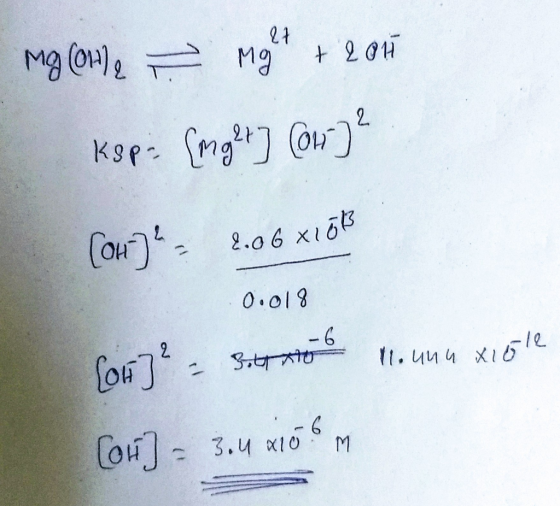 Mg(OH)₂ ⇌ Mg²⁺ + 2OH⁻
Ksp = [Mg²⁺] [OH⁻]²
[OH⁻]² = 2.06 × 10⁻¹³
0.018
[OH⁻]² = 3.4 × 10⁻⁶ 11.444 × 10⁻¹²
[OH⁻] = 3.4 × 10⁻⁶ M